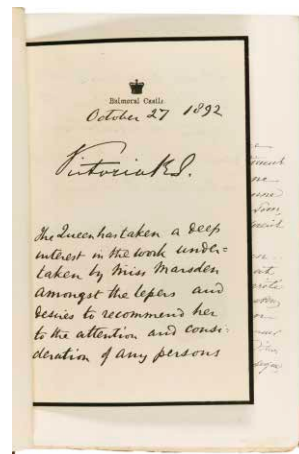 Balmoral Castle
October 27 1892
Victoria R.I.
The Queen has taken a deep
interest in the work under=
taken by Miss Marsden
amongst the lepers and
desires to recommend her
to the attention and consi-
deration of any persons